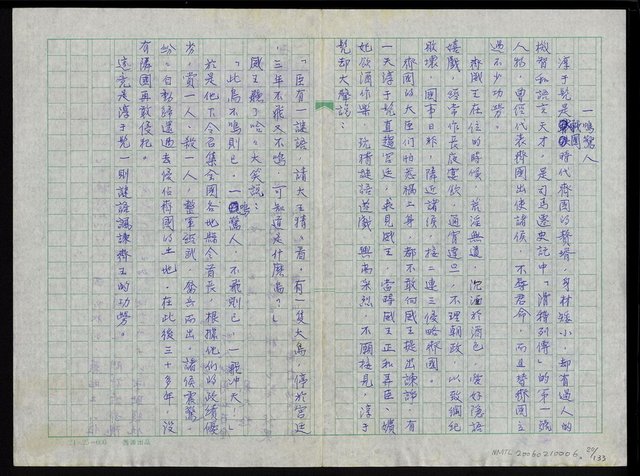 一鳴驚人
淳于髡是戰國時代齊國的贅壻，身材矮小，却有過人的
機智和語言天才，是司馬遷史記中「滑稽列傳」的第一號
人物，曾經代表齊國出使諸侯，不辱君命，而且替齊國立
過不少功勞。
齊威王在位的時候，荒淫無道，沈湎於酒色，愛好隱語
嬉戲，經常作長夜宴飲，通宵達旦，不理朝政，以致綱紀
敗壞，國事日非，隣近諸侯，接二連三侵略齊國。
齊國的大臣們怕惹禍上身，都不敢向威王提出諫諍，有
一天淳于髡直趨宮廷，求見威王，當時威王正和弄臣、嬪
妃飲酒作樂，玩猜謎語遊戲，興高采烈，不願接見，淳于
髡却大聲說：
「臣有一謎語，請大王猜一看，有一隻大鳥，停於宮廷
，三年不飛又不鳴，可知道是什麼鳥？」
威王聽了哈哈大笑說：
「此鳥不鳴則已，一鳴驚人，不飛則已，一飛冲天！」
於是他下令召集全國各地縣令首長，根據他們的政績優
劣，賞一人、殺一人，整軍經武，奮兵而出，諸侯震驚，
紛紛自動歸還過去侵佔齊國的土地，在此後三十多年，沒
有隣國再敢侵犯。
這竟是淳于髡一則謎語諷諫齊王的功勞。
21-25=600
NMTL 20060210006.
20/133